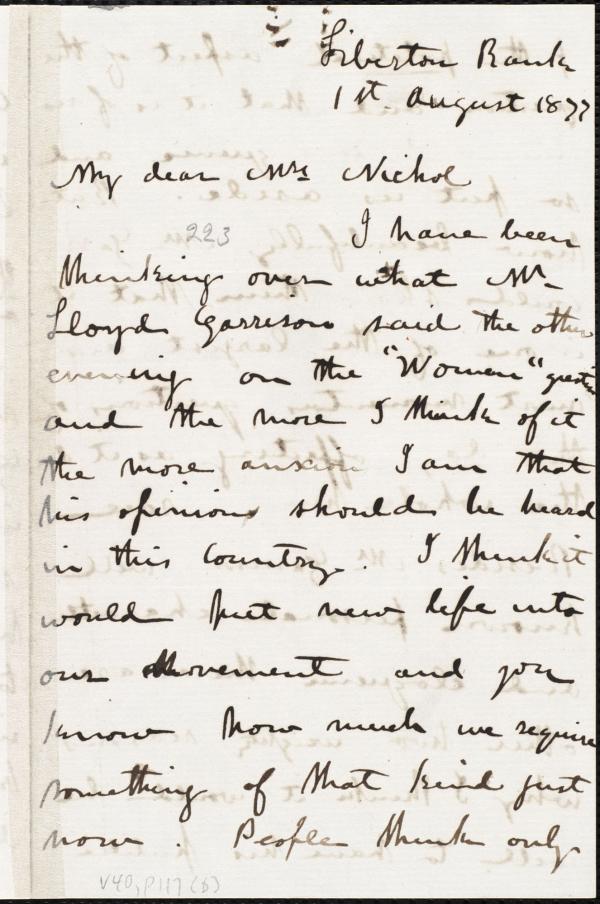 Liberton Bank
1st. August 1877
My dear Mrs Nichol
223
I have been
thinking over what Mr
Lloyd Garrison said the other
evening on the "Women" question
and the more I think of it
the more anxious I am that
his opinions should be heard
in this Country. I think it
would put new life into
our Movement and you
know how much we require
something of that kind just
now. People think only
V40, P117 (b)